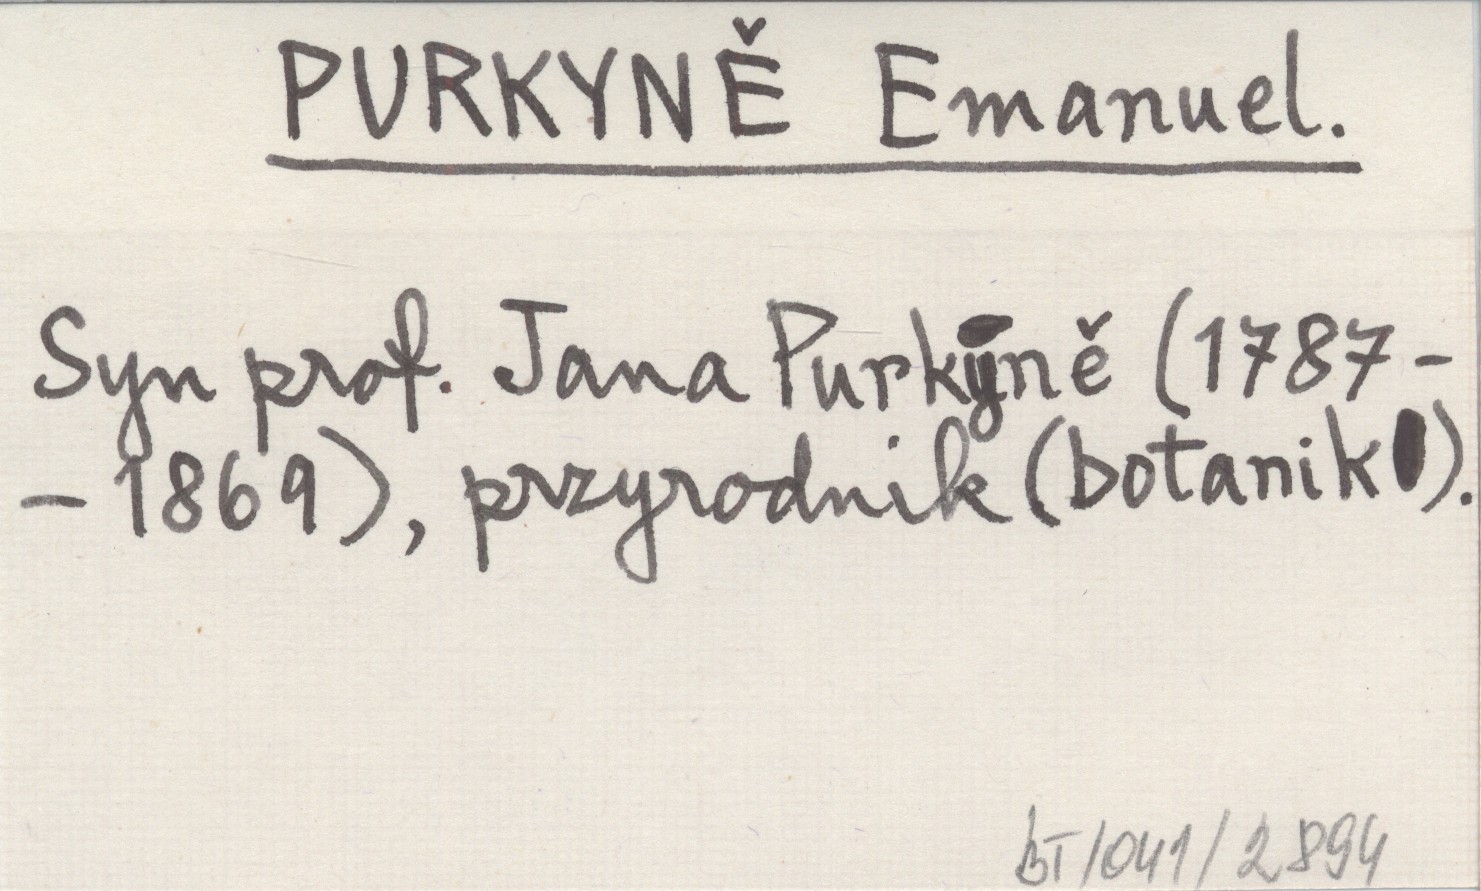 PURKYNĚ Emanuel.
Syn prof. Jana Purkyně (1787-
- 1869), przyrodnik (botanik).
BT/041/2894